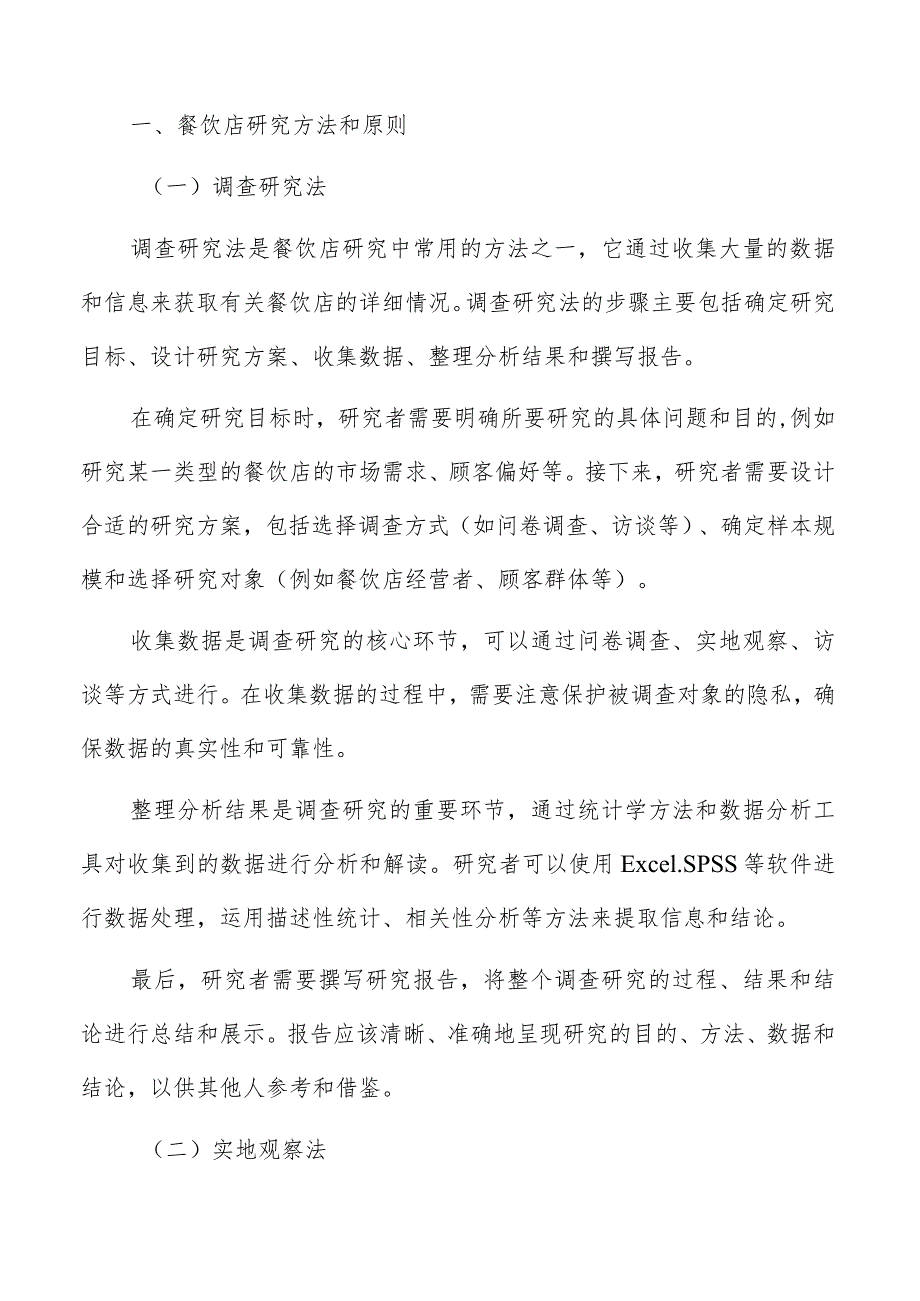 一、餐饮店研究方法和原则
（一）调查研究法
调查研究法是餐饮店研究中常用的方法之一，它通过收集大量的数据
和信息来获取有关餐饮店的详细情况。调查研究法的步骤主要包括确定研究
目标、设计研究方案、收集数据、整理分析结果和撰写报告。
在确定研究目标时，研究者需要明确所要研究的具体问题和目的,例如
研究某一类型的餐饮店的市场需求、顾客偏好等。接下来，研究者需要设计
合适的研究方案，包括选择调查方式（如问卷调查、访谈等）、确定样本规
模和选择研究对象（例如餐饮店经营者、顾客群体等）。
收集数据是调查研究的核心环节，可以通过问卷调查、实地观察、访
谈等方式进行。在收集数据的过程中，需要注意保护被调查对象的隐私，确
保数据的真实性和可靠性。
整理分析结果是调查研究的重要环节，通过统计学方法和数据分析工
具对收集到的数据进行分析和解读。研究者可以使用 Excel.SPSS 等软件进
行数据处理，运用描述性统计、相关性分析等方法来提取信息和结论。
最后，研究者需要撰写研究报告，将整个调查研究的过程、结果和结
论进行总结和展示。报告应该清晰、准确地呈现研究的目的、方法、数据和
结论，以供其他人参考和借鉴。
（二）实地观察法